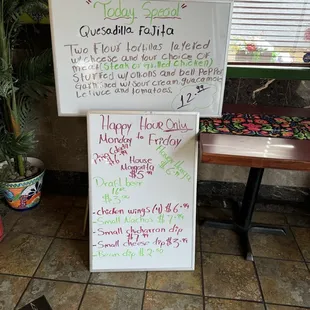 "Today Special"
Quesadilla Fajita
Two Flour tortillas layered
w/cheese and your choice OF
meat (Steak or grilled chicken)
Stuffed w/onions and bell Pepper
Garnished w/sour cream, guacamole
Lettuce and tomatoes.
12.99
Happy Hour Only
Monday to Friday
Piña Colada
$6
House
Margarita
$5
Draft beer
16oz
- chicken wings (4) $6.99
- Small Nachos $7.99
- Small chicharron dip
$7.99
- Small cheese dip $3.99
- Bean dip